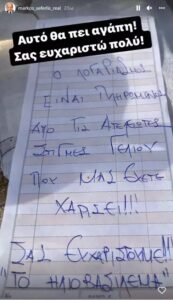 markos_seferlis_real 20ω
Αυτό θα πει αγάπη!
Σας ευχαριστώ πολύ!
Ο ΛΟΓΑΡΙΑΣΜΟΣ
ΕΙΝΑΙ ΠΛΗΡΩΜΕΝΟΣ
ΑΠΟ ΤΙΣ ΑΤΕΛΕΙΩΤΕΣ
ΣΤΙΓΜΕΣ ΓΕΛΙΟΥ
ΠΟΥ ΜΑΣ ΕΧΕΤΕ
ΧΑΡΙΣΕΙ!!!
ΣΑΣ ΕΥΧΑΡΙΣΤΟΥΜΕ!!
"ΤΟ ΗΛΙΟΒΑΣΙΛΕΜΑ"